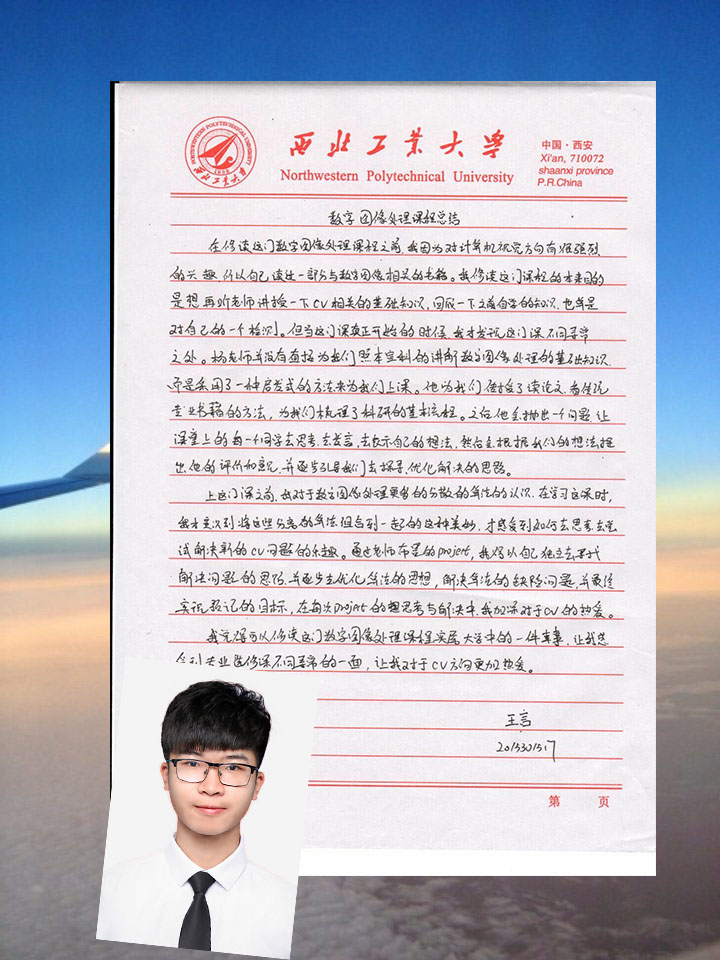 西北工业大学
Northwestern Polytechnical University
中国·西安
Xi'an, 710072
shaanxi province
P.R.China
NORTHWESTERN POLYTECHNICAL UNIVERSITY
1938
西北工业大学
数字图像处理课程总结
在修读这门数字图像处理课程之前,我因为对计算机视觉方向有很强烈
的兴趣,所以自己读过一部分与数字图像相关的书籍。我修读这门课程的本来目的
是想再听老师讲授一下CV相关的基础知识,回顾一下之前自学的知识,也算是
对自己的一个检测。但当这门课真正开始的时候,我才发现这门课不同寻常
之处。杨老师并没有直接为我们照本宣科的讲解数字图像处理的基础知识
而是采用了一种启发式的方法来为我们上课。他为我们传授了读论文,看
专业书籍的方法,为我们梳理了科研的基本流程。之后他会抛出一个问题,让
课堂上的每一个同学去思考,去发言,去表示自己的想法,然后会根据我们的想法提
出他的评价和意见,并逐步引导我们去探寻,优化解决的思路。
上这门课之前,我对于数字图像处理更多的分散的算法的认识,在学习这课时,
我才意识到将这些分离的算法组合到一起的这种美妙,才感受到如何去思考去尝
试解决新的CV问题的乐趣。通过老师布置的project,我得以自己独立去
解决问题的思路,并逐步去优化算法的思想,解决算法的缺陷问题,并最终
实现的目标,在每次project的思考与解决中,我加深对于CV的热爱。
我觉得可以修读这门数字图像处理课程实属大学中的一件幸事,让我感
受到专业选修课不同寻常的一面,让我对于CV方向更加热爱。
王言
2015301517
第 页